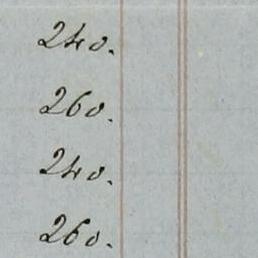 240.
260.
240.
260.